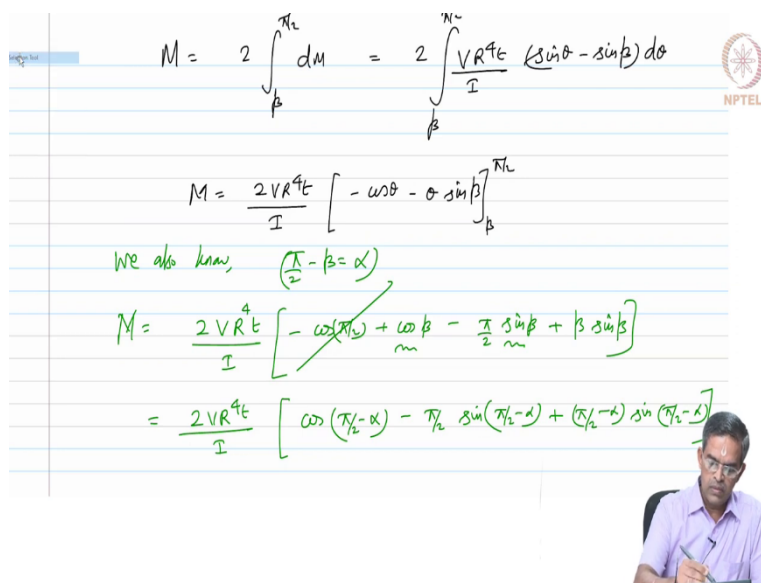 M = 2 ∫_β^{π/2} dM = 2 ∫_β^{π/2} VR⁴t/I (sinθ - sinβ) dθ
NPTEL
M = 2VR⁴t/I [ - cosθ - θ sinβ ]_β^{π/2}
We also know, (π/2 - β = α)
M = 2VR⁴t/I [ - cos(π/2) + cosβ - π/2 sinβ + β sinβ ]
= 2VR⁴t/I [ cos(π/2-α) - π/2 sin(π/2-α) + (π/2-α) sin(π/2-α) ]